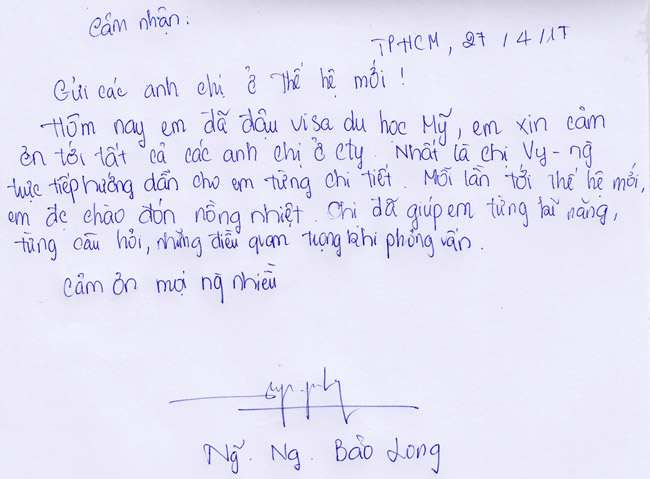 Cảm nhận:
TPHCM, 27/4/17
Gửi các anh chị ở Thế hệ mới!
Hôm nay em đã đậu visa du học Mỹ, em xin cảm
ơn tới tất cả các anh chị ở cty. Nhất là chị Vy - ng
trực tiếp hướng dẫn cho em từng chi tiết. Mỗi lần tới Thế hệ mới,
em đc chào đón nồng nhiệt. Chị đã giúp em từng kĩ năng,
từng câu hỏi, những điều quan trọng khi phỏng vấn.
Cảm ơn mọi ng nhiều
Ng̃. Ng. Bảo Long